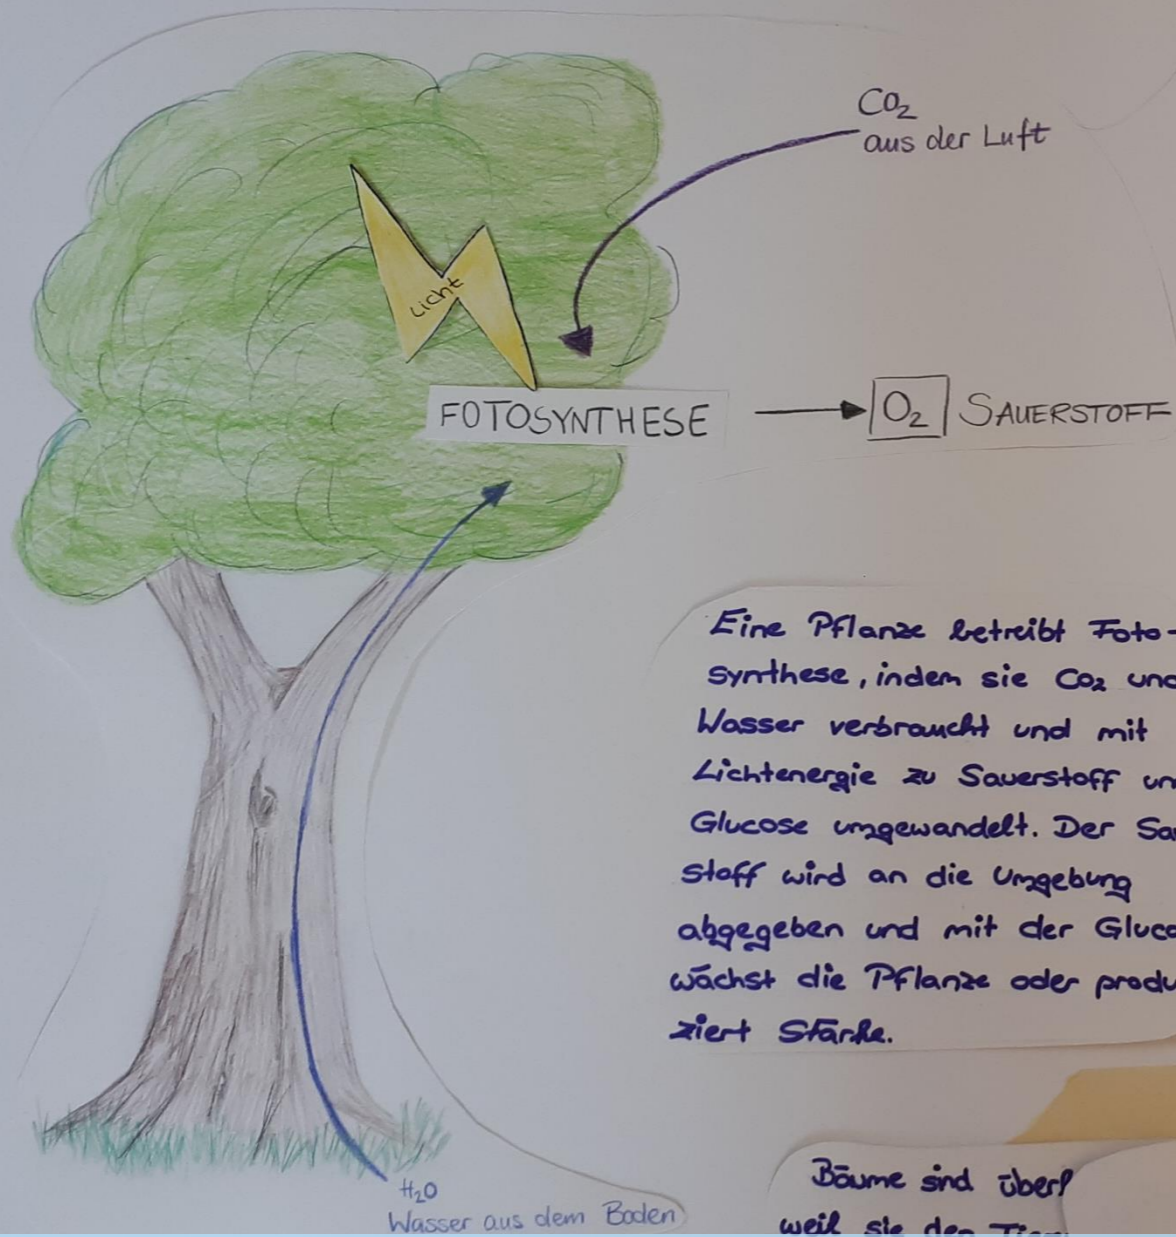 CO₂
aus der Luft
Licht
FOTOSYNTHESE
O₂ SAUERSTOFF
Eine Pflanze betreibt Foto-
synthese, indem sie CO₂ und
Wasser verbraucht und mit
Lichtenergie zu Sauerstoff
Glucose umgewandelt. Der
stoff wird an die Umgebung
abgegeben und mit der
wächst die Pflanze oder produ
ziert Stärke.
H₂O
Wasser aus dem Boden
Bäume sind
weil sie den